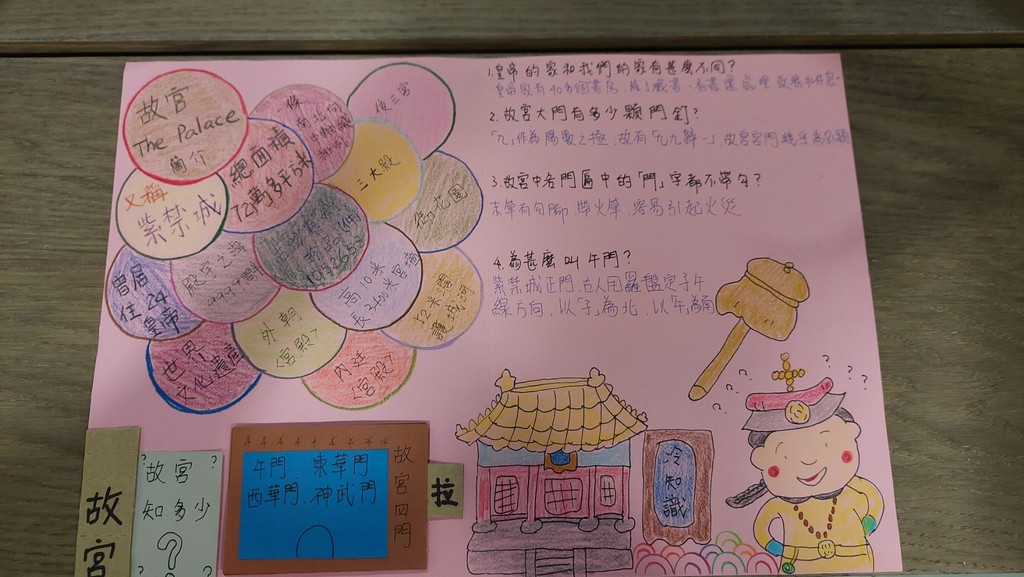 故宮
The Palace
簡介
又稱
紫禁城
總面積
72萬多平
後三宮
三大殿
御花園
殿宇之海
曾居
住24
皇帝
世界
文化遺產
外朝
<宮殿>
內廷
<宮殿>
高10米
長3400米宮牆
護城河
1.皇帝的家和我們的家有甚麼不同？
2.故宮大門有多少顆門釘？
「九」作為陽數之極,故有「九九歸一」,故宮宮門
3.故宮中各門匾中的「門」字都不帶勾？
末筆有勾腳,帶火筆,容易引起火災
4.為甚麼叫午門？
紫禁城正門,古人用羅盤定子午
線方向,以「子」為北,以「午」為南
故宮
? 故宮 ?
知多少
?
? ?
午門、東華門
西華門、神武門
故宮四門
拉
冷知識
? ? ? ? ? ?